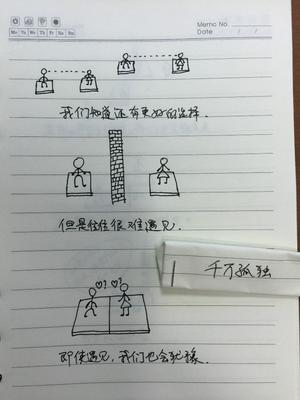 Memo No
Mo Tu We Th Fr Sa Su
Date / /
我们知道还有更好的选择.
但是往往很难遇见.
千万孤独
♡? ♡?
即使遇见,我们也会犹豫.